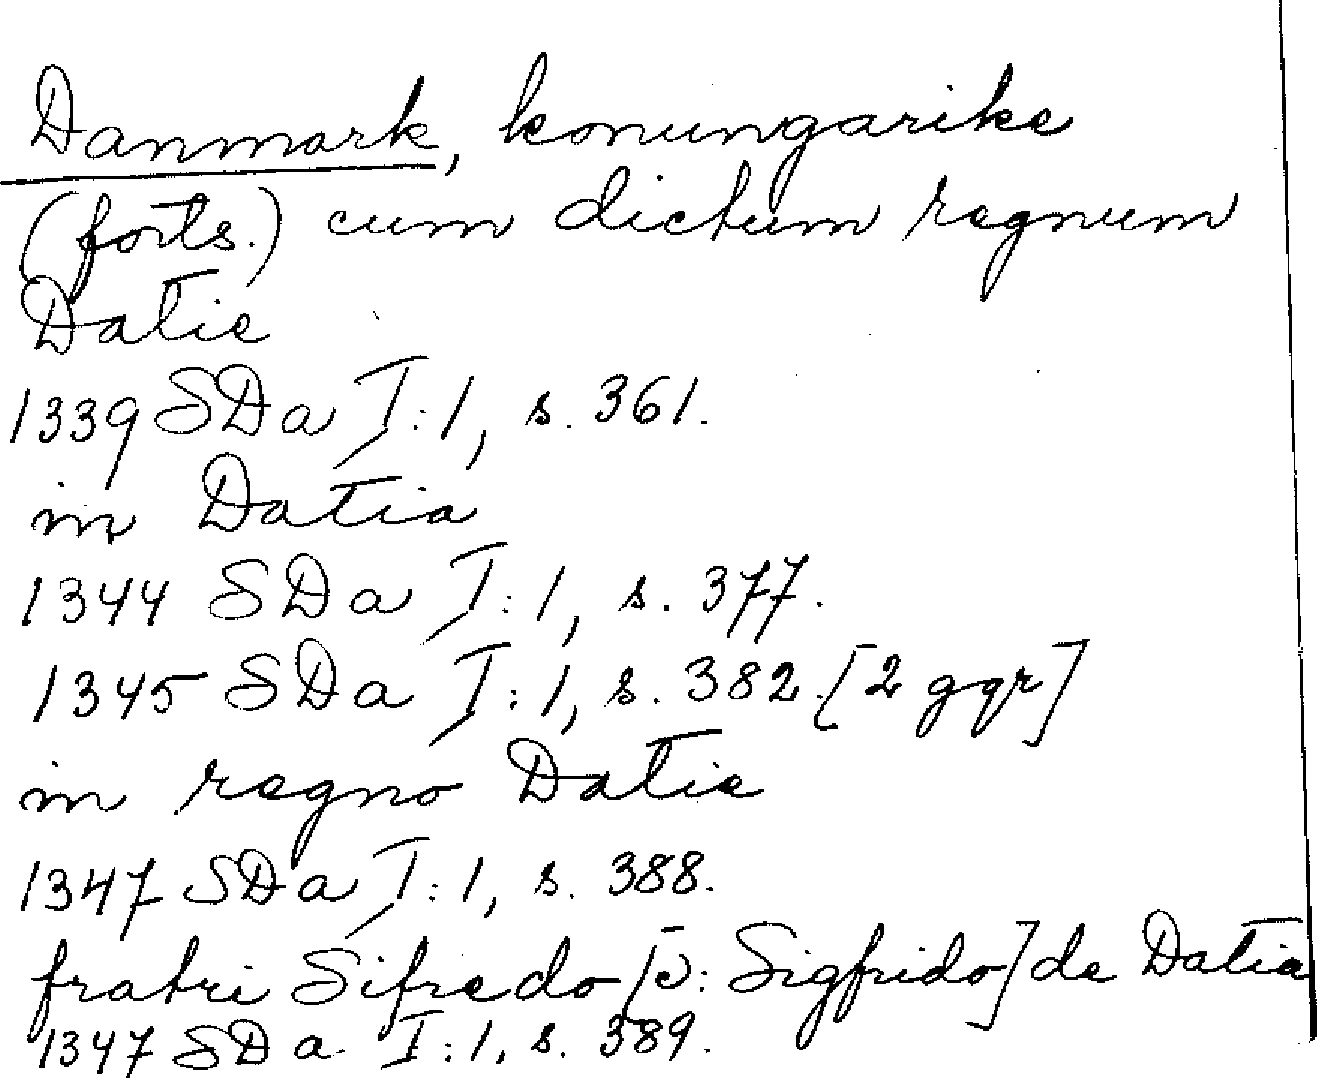 Danmark, konungarike
(forts.) cum dictum regnum
Datie
1339 SDa I:1, s. 361.
in Datia
1344 SDa I:1, s. 377.
1345 SDa I:1, s. 382. [2 ggr]
in regno Datie
1347 SDa I:1, s. 388.
fratri Sifredo [ɔ: Sigfrido] de Datia
1347 SDa I:1, s. 389.